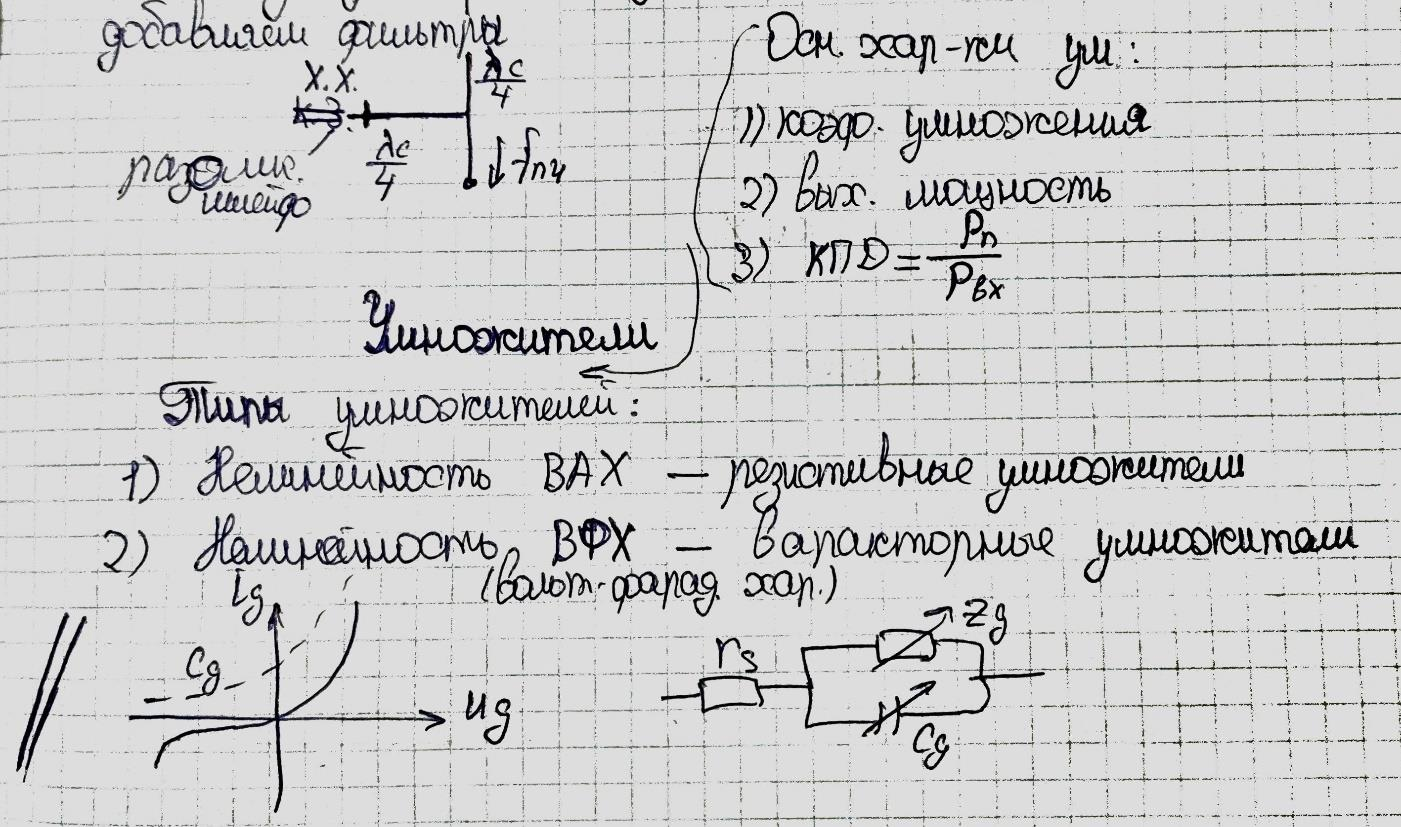 добавляем фильтры
х.х.
λс/4
разомк.
шлейф
λс/4
fпч
Осн. хар-ки ум.:
1) коэф. умножения
2) вых. мощность
3) КПД = Pп/Pвх
Умножители
Типы умножителей:
1) Нелинейность ВАХ — резистивные умножители
2) Нелинейность ВФХ — варакторные умножители
(вольт-фарад. хар.)
ig
Cg
ug
rs
Zg
Cg